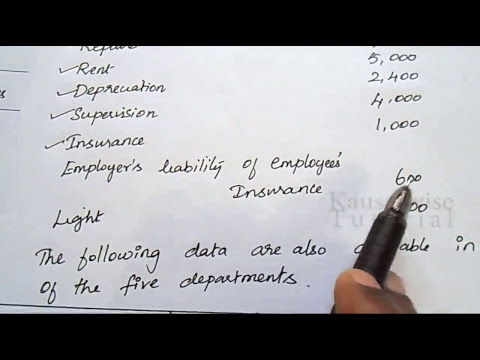 Rent 5,000
Depreciation 2,400
Supervision 4,000
Insurance 1,000
Employer's liability of employees'
Insurance 600
Light 00
The following data are also in
of the five departments.
Kauserwise
Tutorial